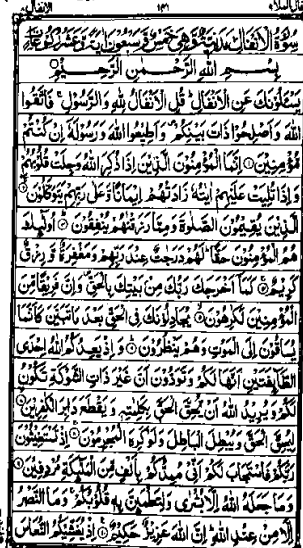 قال الملاء ٩ ١٣١ الانفال ٨
سُورَةُ الْاَنْفَالِ مَدَنِيَّةٌ وَّهِيَ خَمْسٌ وَّسَبْعُوْنَ اٰيَةً وَّعَشْرُ رُكُوْعَاتٍ
بِسْمِ اللهِ الرَّحْمٰنِ الرَّحِيْمِ
يَسْئَلُوْنَكَ عَنِ الْاَنْفَالِ قُلِ الْاَنْفَالُ لِلّٰهِ وَالرَّسُوْلِ فَاتَّقُوا
اللهَ وَاَصْلِحُوْا ذَاتَ بَيْنِكُمْ وَاَطِيْعُوا اللهَ وَرَسُوْلَهٗ اِنْ كُنْتُمْ
مُّؤْمِنِيْنَ ۝ اِنَّمَا الْمُؤْمِنُوْنَ الَّذِيْنَ اِذَا ذُكِرَ اللهُ وَجِلَتْ قُلُوْبُهُمْ
وَاِذَا تُلِيَتْ عَلَيْهِمْ اٰيٰتُهٗ زَادَتْهُمْ اِيْمَانًا وَّعَلٰى رَبِّهِمْ يَتَوَكَّلُوْنَ ۝
الَّذِيْنَ يُقِيْمُوْنَ الصَّلٰوةَ وَمِمَّا رَزَقْنٰهُمْ يُنْفِقُوْنَ ۝ اُولٰٓئِكَ
هُمُ الْمُؤْمِنُوْنَ حَقًّا لَهُمْ دَرَجٰتٌ عِنْدَ رَبِّهِمْ وَمَغْفِرَةٌ وَّرِزْقٌ
كَرِيْمٌ ۝ كَمَا اَخْرَجَكَ رَبُّكَ مِنْ بَيْتِكَ بِالْحَقِّ وَاِنَّ فَرِيْقًا مِّنَ
الْمُؤْمِنِيْنَ لَكٰرِهُوْنَ ۝ يُجَادِلُوْنَكَ فِى الْحَقِّ بَعْدَ مَا تَبَيَّنَ كَاَنَّمَا
يُسَاقُوْنَ اِلَى الْمَوْتِ وَهُمْ يَنْظُرُوْنَ ۝ وَاِذْ يَعِدُكُمُ اللهُ اِحْدَى
الطَّآئِفَتَيْنِ اَنَّهَا لَكُمْ وَتَوَدُّوْنَ اَنَّ غَيْرَ ذَاتِ الشَّوْكَةِ تَكُوْنُ
لَكُمْ وَيُرِيْدُ اللهُ اَنْ يُّحِقَّ الْحَقَّ بِكَلِمٰتِهٖ وَيَقْطَعَ دَابِرَ الْكٰفِرِيْنَ ۝
لِيُحِقَّ الْحَقَّ وَيُبْطِلَ الْبَاطِلَ وَلَوْ كَرِهَ الْمُجْرِمُوْنَ ۝ اِذْ تَسْتَغِيْثُوْنَ
رَبَّكُمْ فَاسْتَجَابَ لَكُمْ اَنِّىْ مُمِدُّكُمْ بِاَلْفٍ مِّنَ الْمَلٰٓئِكَةِ مُرْدِفِيْنَ ۝
وَمَا جَعَلَهُ اللهُ اِلَّا بُشْرٰى وَلِتَطْمَئِنَّ بِهٖ قُلُوْبُكُمْ وَمَا النَّصْرُ
اِلَّا مِنْ عِنْدِ اللهِ اِنَّ اللهَ عَزِيْزٌ حَكِيْمٌ ۝ اِذْ يُغَشِّيْكُمُ النُّعَاسَ